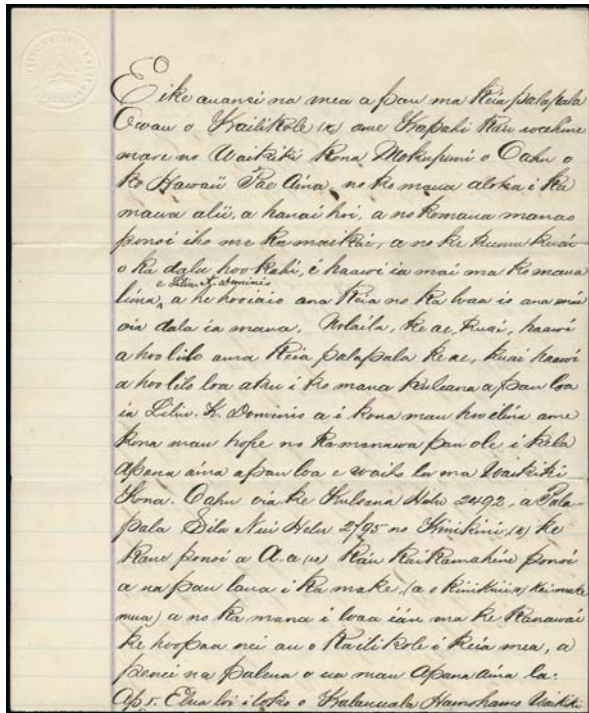 E ike auanei na mea a pau ma keia palapala
Owau o Kailikole (k) ame Kapahi ka'u wahine
mare no Waikiki Kona Mokupuni o Oahu o
ko Hawaii Pae Aina, no ko maua aloha i ka
maua alii, a hanai hoi, a no ko maua manao
ponoi iho me ka maikai, a no ke kumu kuai
o ka dala hookahi, i haawi ia mai ma ko maua
lima, e Liliu K. Dominis a he hooiaio ana keia no ka loaa io ana mai
oia dala ia maua. Nolaila, ke ae, kuai, haawi
a hoolilo ama keia palapala ke ae, kuai haawi
a hoolilo loa aku i ko maua kuleana a pau loa
ia Liliu. K. Dominis a i kona mau hooilina ame
kona mau hope no ka manawa pau ole i kela
Apana aina a pau loa e waiho la ma Waikiki
Kona. Oahu oia ke Kuleana Helu 2492, a Pala-
pala Sila Nui Helu 2795 no Kinikini, (k) ke
kane ponoi a A.a (w) ka'u kaikamahine ponoi
a ua pau laua i ka make, (a o Kinikini (k) kei make
mua) a no ka mana i loaa ia'u ma ke Kanawai
ke hoopaa nei au o Kailikole i keia mea, a
penei na palena o ua mau Apana aina la.
Ap 1. Elua loi iloko o Kalamuala Hamohamo Waikiki